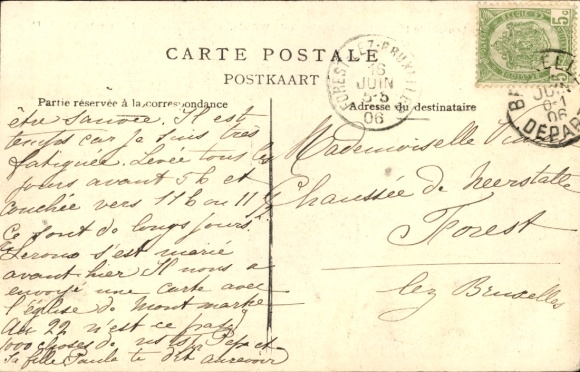 CARTE POSTALE
POSTKAART
Partie réservée à la correspondance
Adresse du destinataire
être sauvée. Il est
temps car je suis très
fatiguée. Levée tous les
jours avant 5h et
couchée vers 11h ou 11 1/2
Ce sont de longs jours.
s'est marié
avant hier Il nous a
envoyé une carte avec
l'église de Montmartre
Au 22 n'est ce pas
1000 choses de
ta fille Paula te dit aurevoir
Mademoiselle
Chaussée de Neerstalle
Forest
lez Bruxelles
FOREST-LEZ-BRUXELLES
16
JUIN
5-5
06
5c
JUIN
06
DEPART